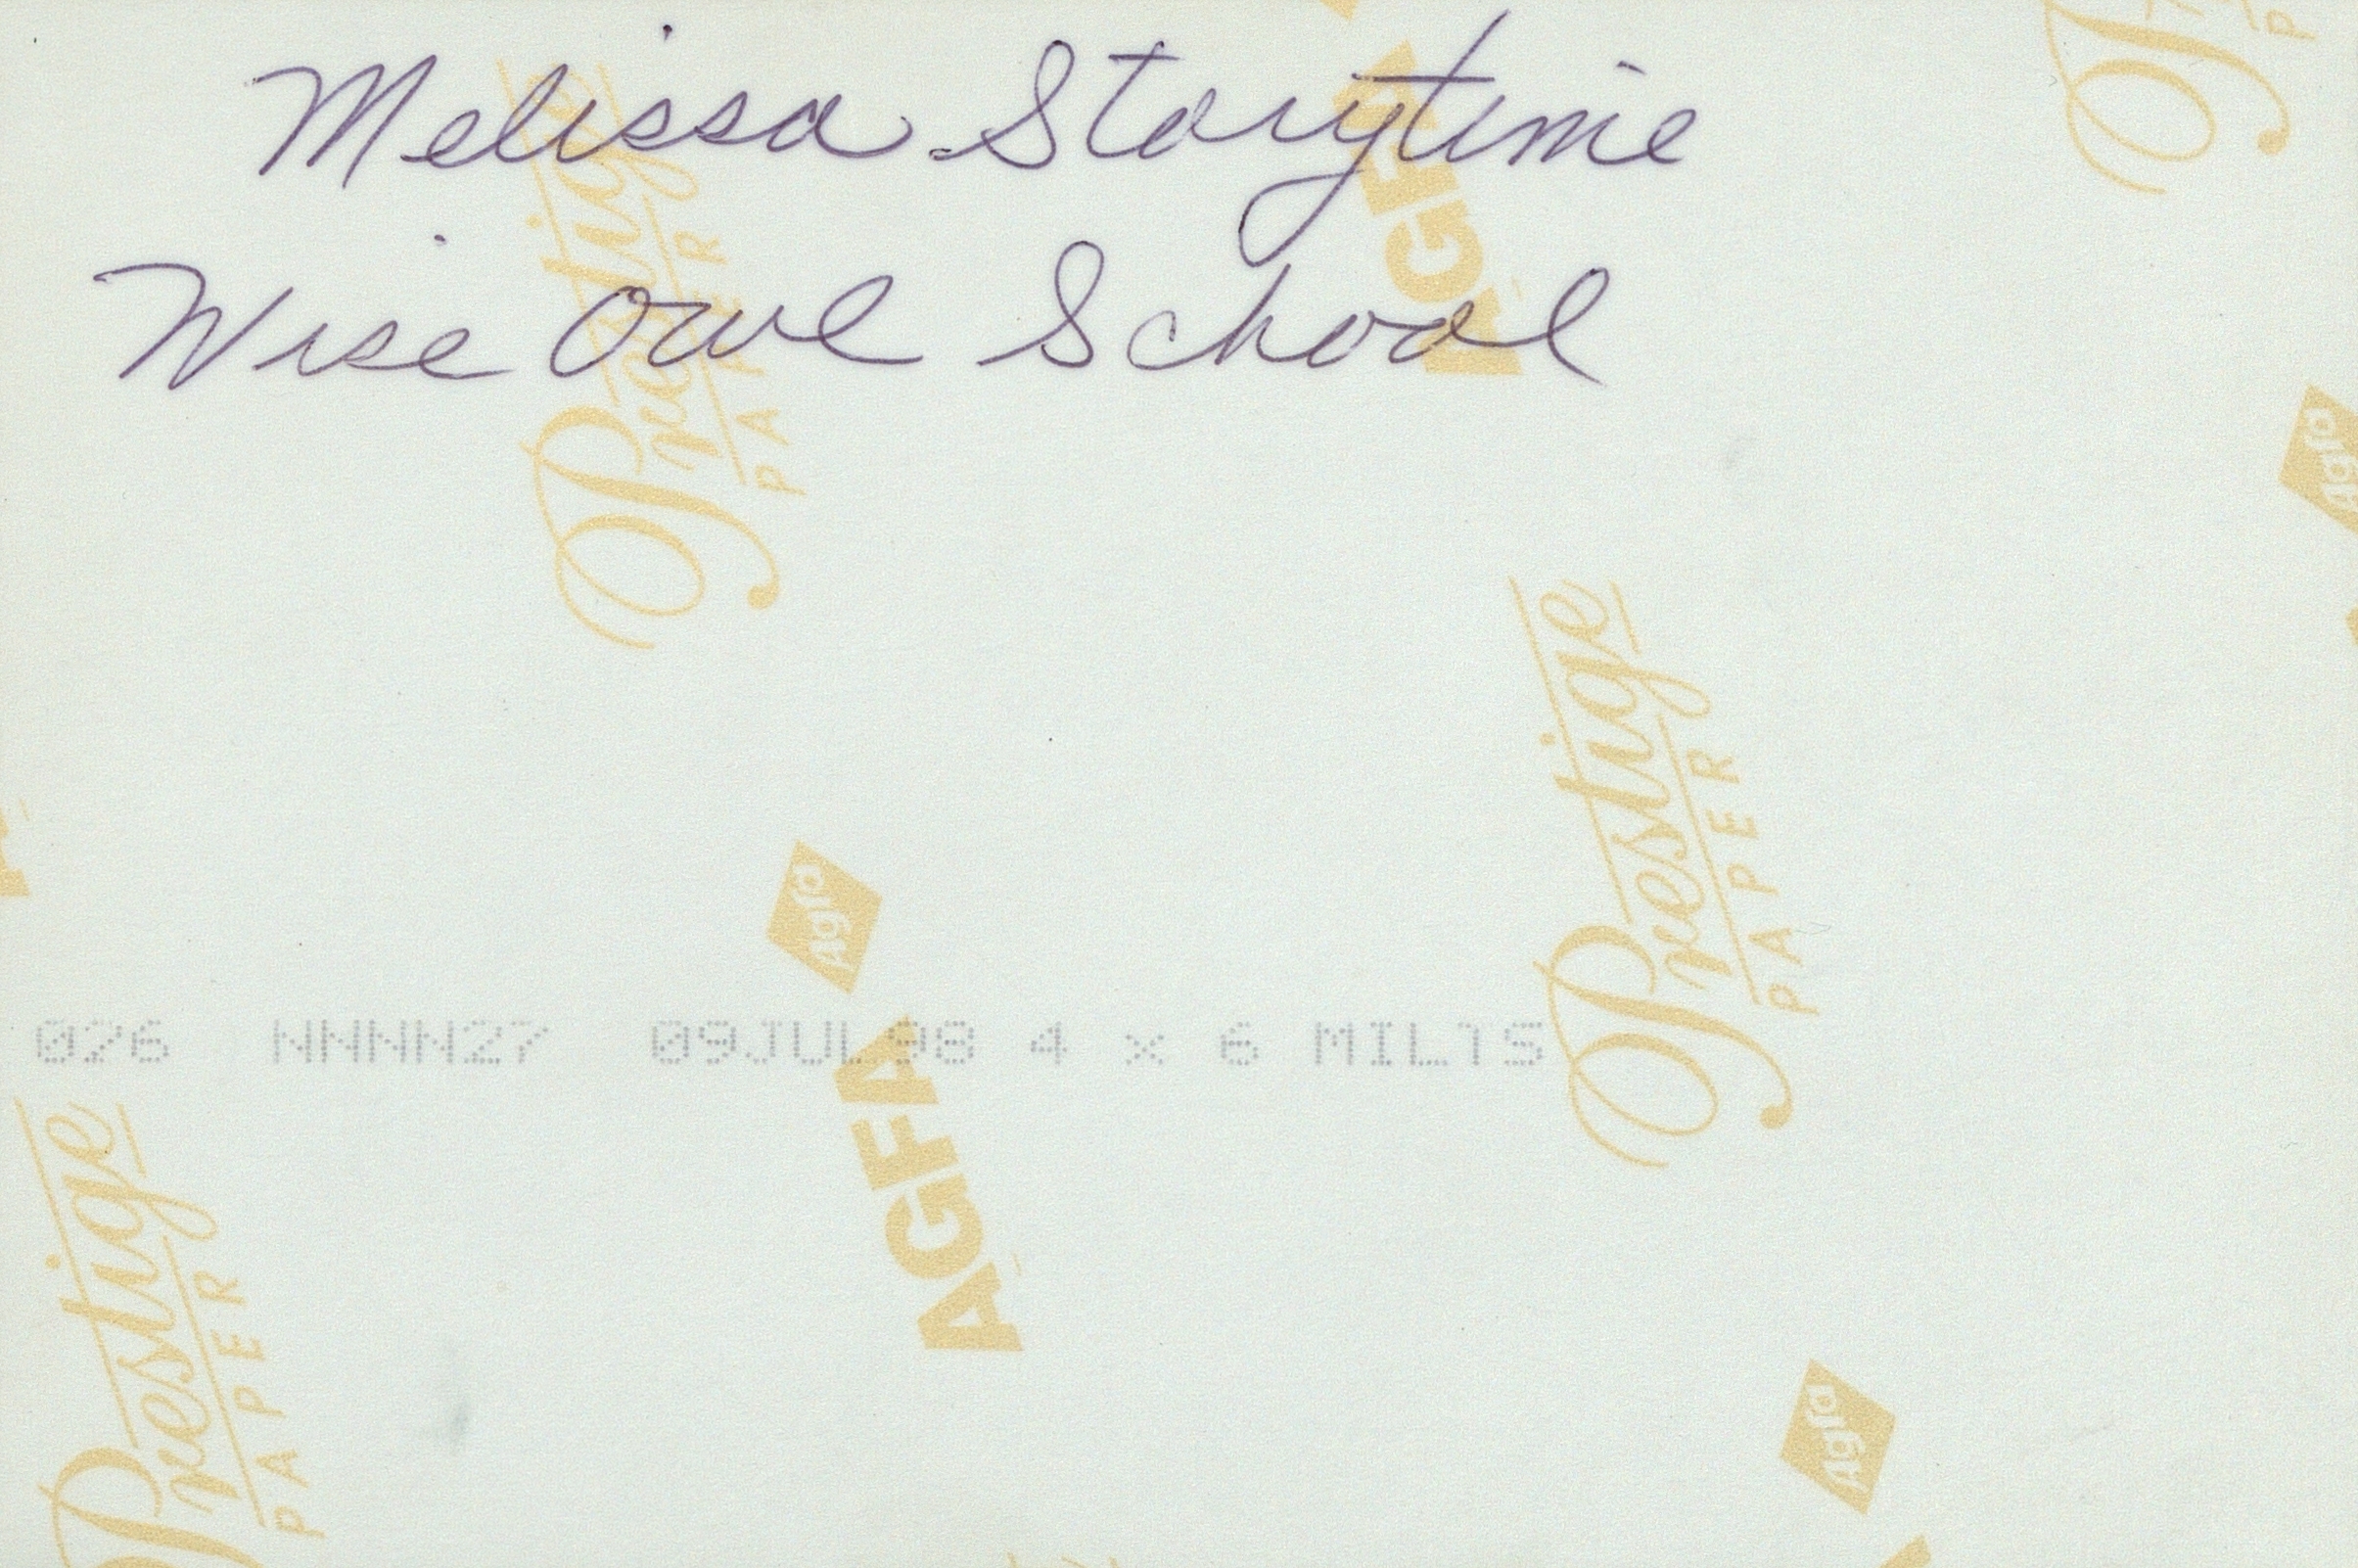 Melissa Storytime
Wise Owl School
Prestige
PAPER
AGFA
Agfa
Prestige
PAPER
Agfa
026 NNNN27 09JUL98 4 x 6 MILTS
AGFA
Prestige
PAPER
Agfa